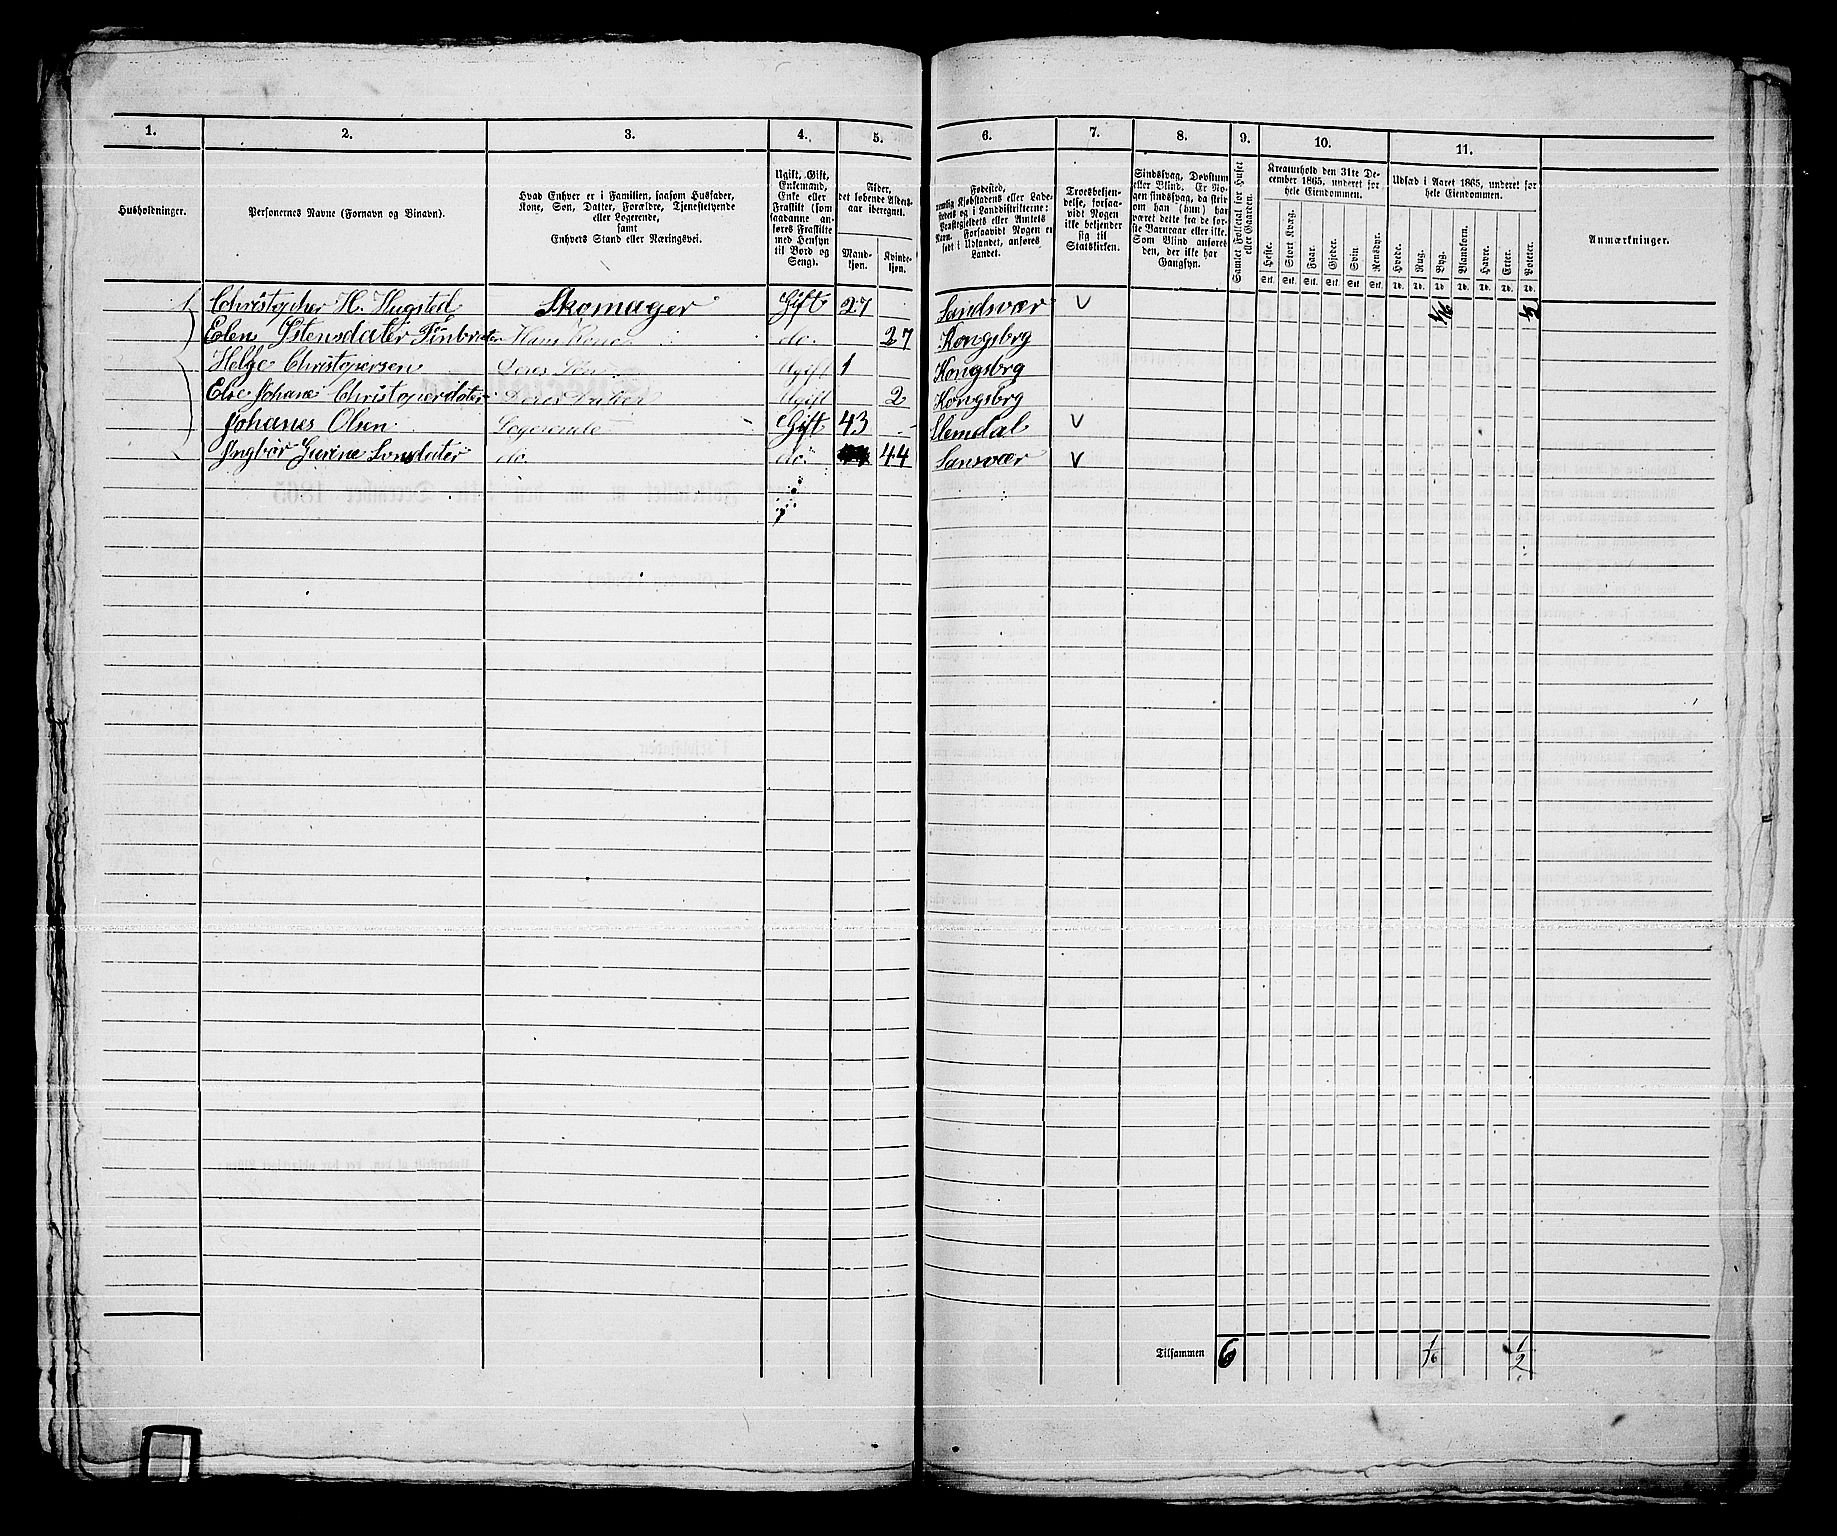 1. 2. 3. 4. 5. 6. 7. 8. 9. 10. 11.
Husholdninger.
Personernes Navne (Fornavn og Binavn).
Hvad Enhver er i Familien, saasom Husfader,
Kone, Søn, Datter, Forældre, Tjenestetyende
eller Logerende,
samt
Enhvers Stand eller Næringsvei.
Ugift, Gift,
Enkemand,
Enke eller
Fraskilt (som
saadanne an-
føres Fraskilte
med Hensyn
til Bord og
Seng).
Alder,
det løbende Alders-
aar iberegnet.
Mand-
kjøn.
Kvinde-
kjøn.
Fødested,
nemlig Kjøbstadens eller Lade-
stedets og i Landdistrikterne:
Præstegjeldets eller Amtets
Navn. Forsaavidt Nogen er
født i Udlandet, anføres
Landet.
Troesbekjen-
delse, forsaa-
vidt Nogen
ikke bekjender
sig til
Statskirken.
Sindssvag, Døvstum
eller Blind. Er No-
gen sindssvag, da skriv
om han (hun) har
været dette fra de før-
ste Barneaar eller ikke.
Som Blind anføres
den, der ikke har
Gangsyn.
Samlet Folketal for Huset
eller Gaarden.
Kreaturhold den 31te De-
cember 1865, underet for
hele Eiendommen.
Heste. Stort Kvæg. Faar. Gjeder. Svin. Rensdyr.
Stk. Stk. Stk. Stk. Stk. Stk.
Udsæd i Aaret 1865, underet for
hele Eiendommen.
Hvede. Rug. Byg. Blandkorn. Havre. Erter. Poteter.
Td. Td. Td. Td. Td. Td. Td.
Anmærkninger.
1 Christopher H. Hugsted Skomager Gift 27 Sandsvær v 1/16 1/2
Elen Istensdater Hans Kone do. 27 Kongsbrg
Helge Christopersen Deres Søn Ugift 1 Kongsbrg
Else Johane Christoperdater Deres Dater Ugift 2 Kongsbrg
Johanes Olsen Logerende Gift 43 Slemdal v
Ingbor Gurine do. do 44 Sansvær v
Tilsammen 6 1/16 1/2